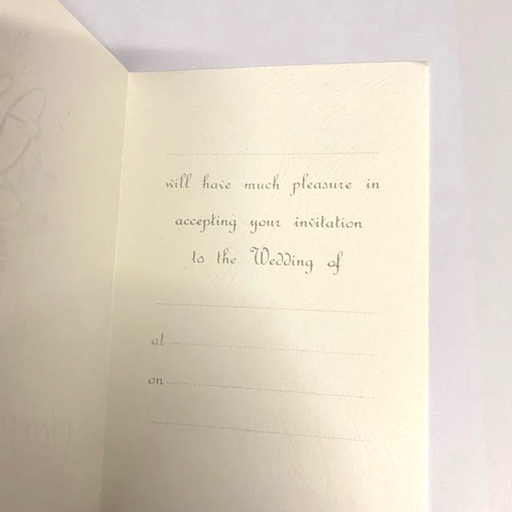 will have much pleasure in
accepting your invitation
to the Wedding of
at
on